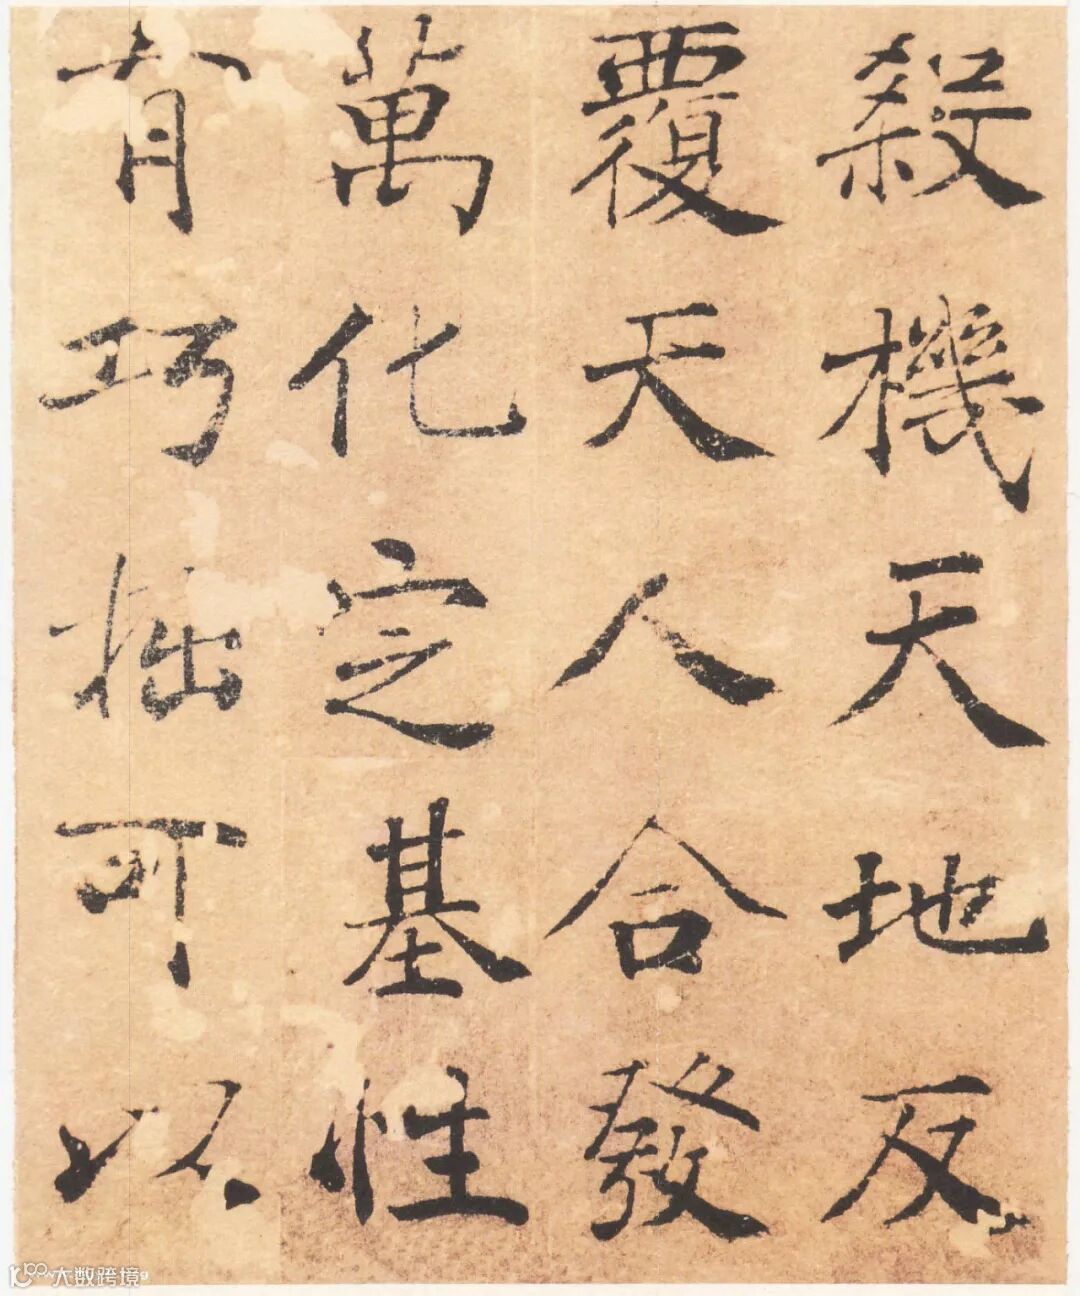 殺機天地反
覆天人合發
萬化定基性
有巧拙可以
大数跨境